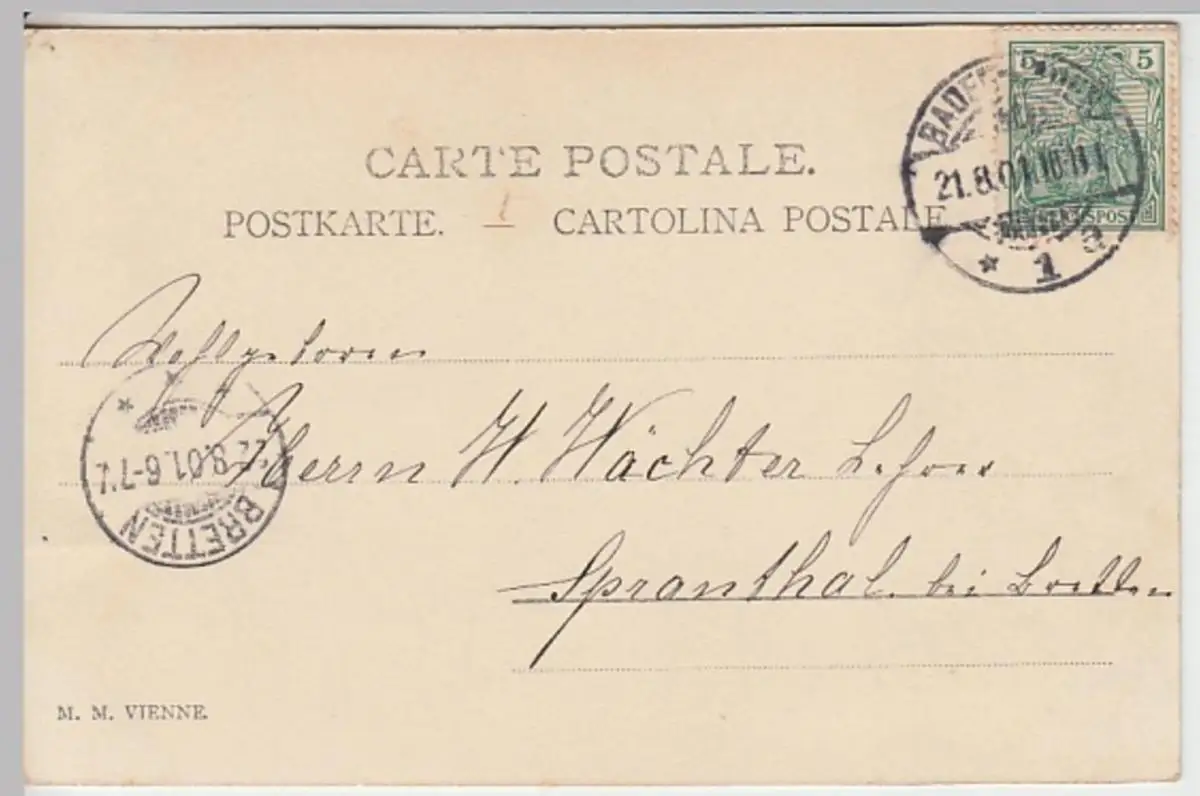 5 5
REICHSPOST
BADEN-BADEN
21.8.01.10-11V.
* 1 a
CARTE POSTALE.
POSTKARTE. CARTOLINA POSTALE
Wohlgeboren
Herrn H. Wächter Lehrer
Spranthal. bei Bretten
22.8.01.6-7V.
BRETTEN
M. M. VIENNE.